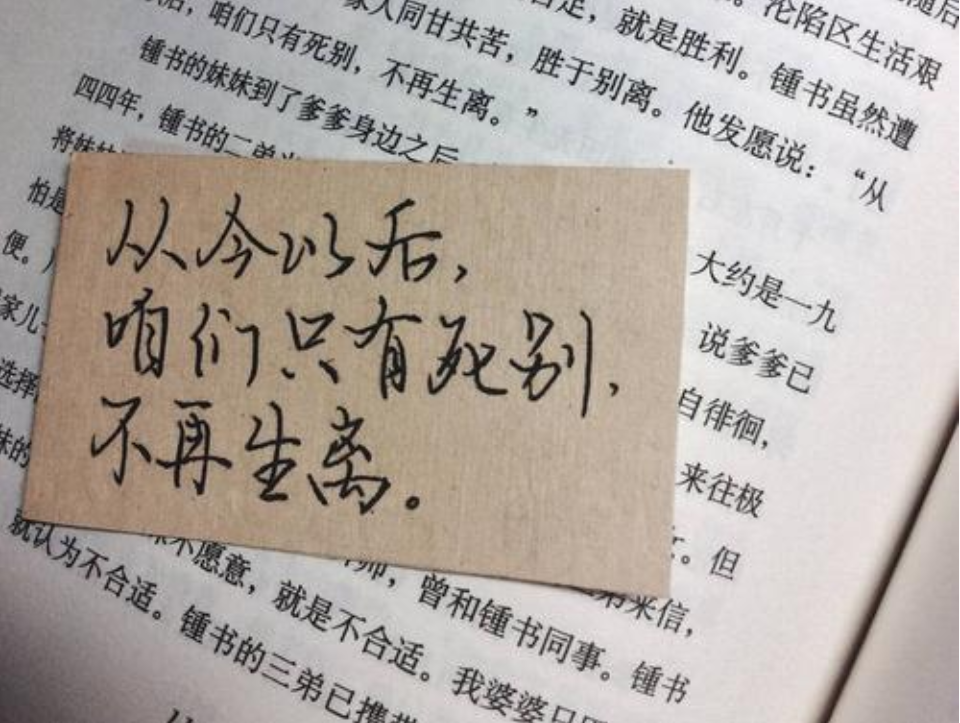 随后
足，就是胜利。沦陷区生活艰
家人同甘共苦，胜于别离。锺书虽然遭
后，咱们只有死别，不再生离。”他发愿说：“从
锺书的妹妹到了爹爹身边之后
大约是一九
四四年，锺书的二弟
说爹爹已
将妹妹
自徘徊，
怕是
来往极
便。
但
家儿子
选择
来信，
妹的
不愿意，就是不合适。曾和锺书同事。锺书
就认为不合适。锺书的三弟已携
我婆婆只
从今以后，
咱们只有死别，
不再生离。